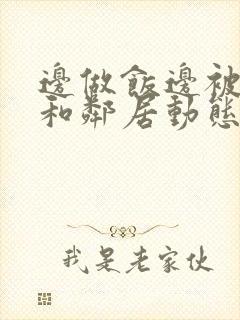 邊做飯邊被
和鄰居動態
我是老家伙